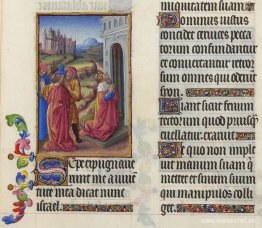 Sepe expugnaue
runt me a iuuen
tute mea dicat nunc
israel
iniquitatem suam
Dominus iustus
concidet ceruices pecca
torum confundantur
et conuertantur retror
sum omnes qui oderunt
syon
Fiant sicut fenum
tectorum quod priusquam
euellatur exaruit
De quo non impleuit
manum suam qui
metet et sinum suum
qui manipulos colli
git